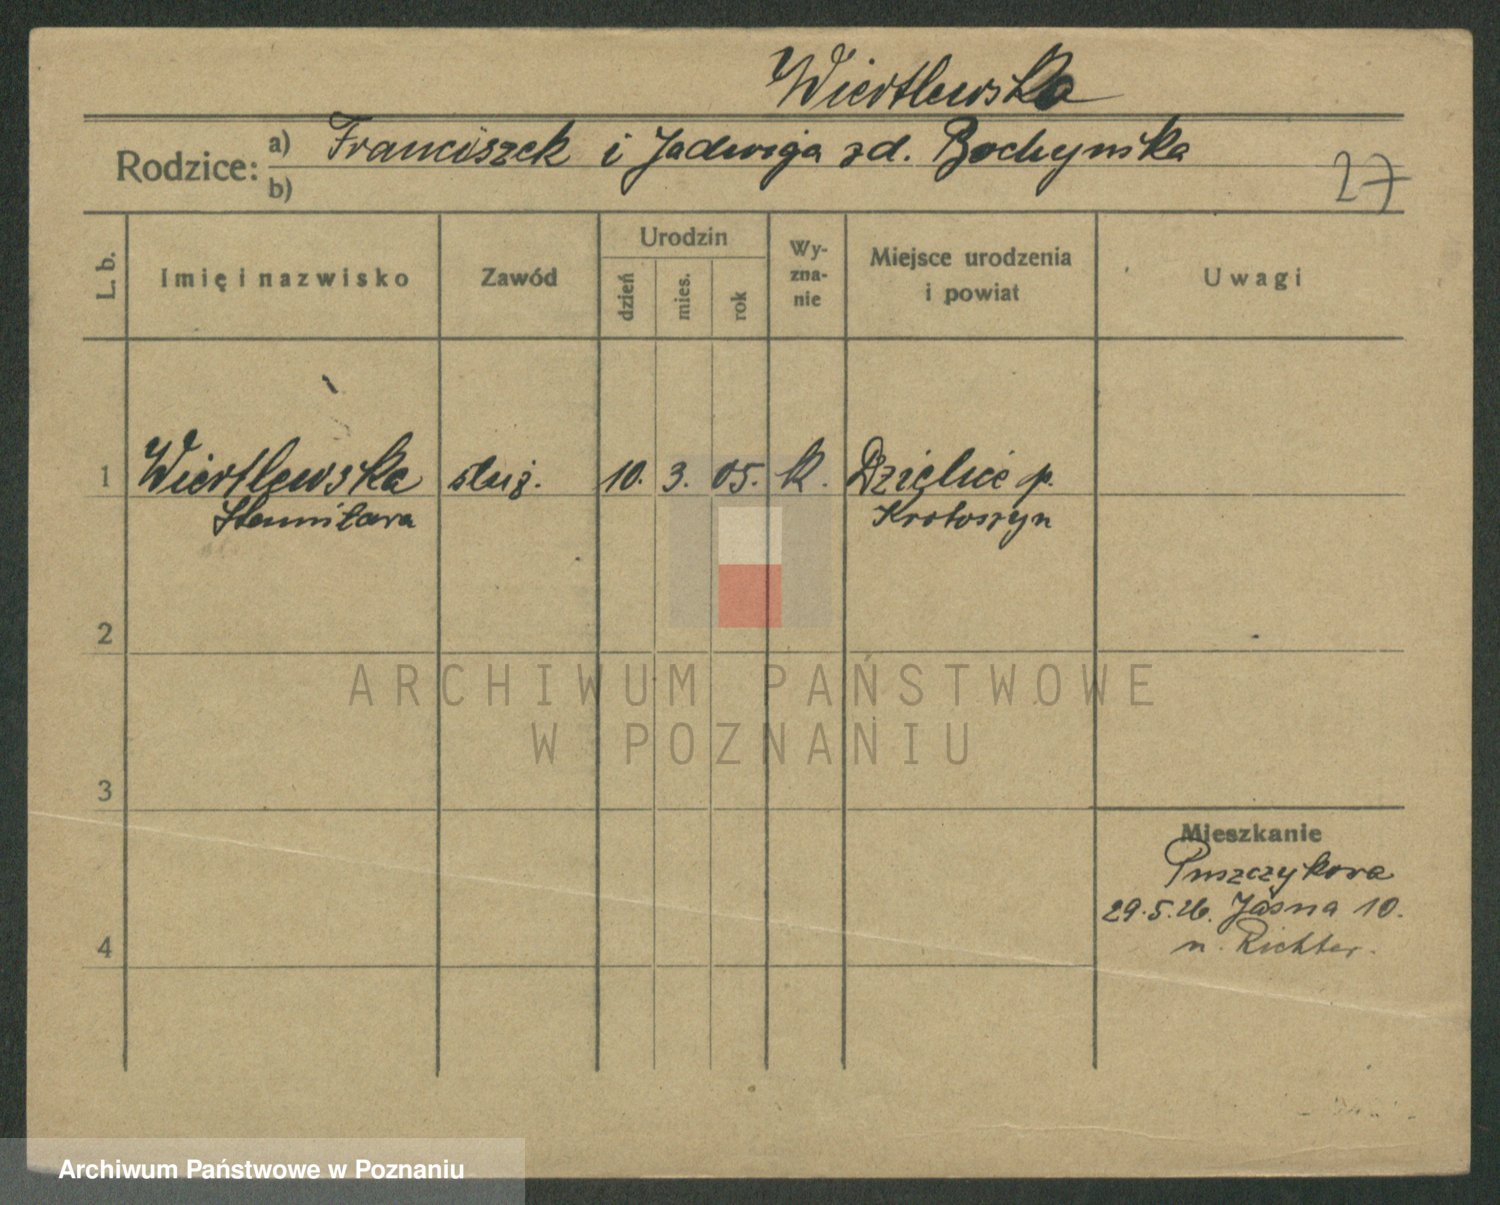 Wiertlewska
Rodzice: a) Franciszek i Jadwiga zd. Bochyńska
b)
27
L. b.
Imię i nazwisko
Zawód
Urodzin
dzień
mies.
rok
Wy-
zna-
nie
Miejsce urodzenia
i powiat
Uwagi
1 Wiertlewska służ. 10. 3. 05. k. Dzielice p.
Stanisława Krotoszyn
2
ARCHIWUM PAŃSTWOWE
W POZNANIU
3
Mieszkanie
Puszczykowa
29.5.26. Jasna 10.
n. Richter.
4
Archiwum Państwowe w Poznaniu